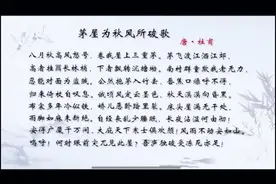 茅屋为秋风所破歌
唐·杜甫
八月秋高风怒号，卷我屋上三重茅。茅飞渡江洒江郊，
高者挂罥长林梢，下者飘转沉塘坳。南村群童欺我老无力，
忍能对面为盗贼，公然抱茅入竹去。唇焦口燥呼不得，
归来倚杖自叹息。俄顷风定云墨色，秋天漠漠向昏黑。
布衾多年冷似铁，娇儿恶卧踏里裂。床头屋漏无干处，
雨脚如麻未断绝。自经丧乱少睡眠，长夜沾湿何由彻！
安得广厦千万间，大庇天下寒士俱欢颜！风雨不动安如山。
呜呼！何时眼前突兀见此屋，吾庐独破受冻死亦足！